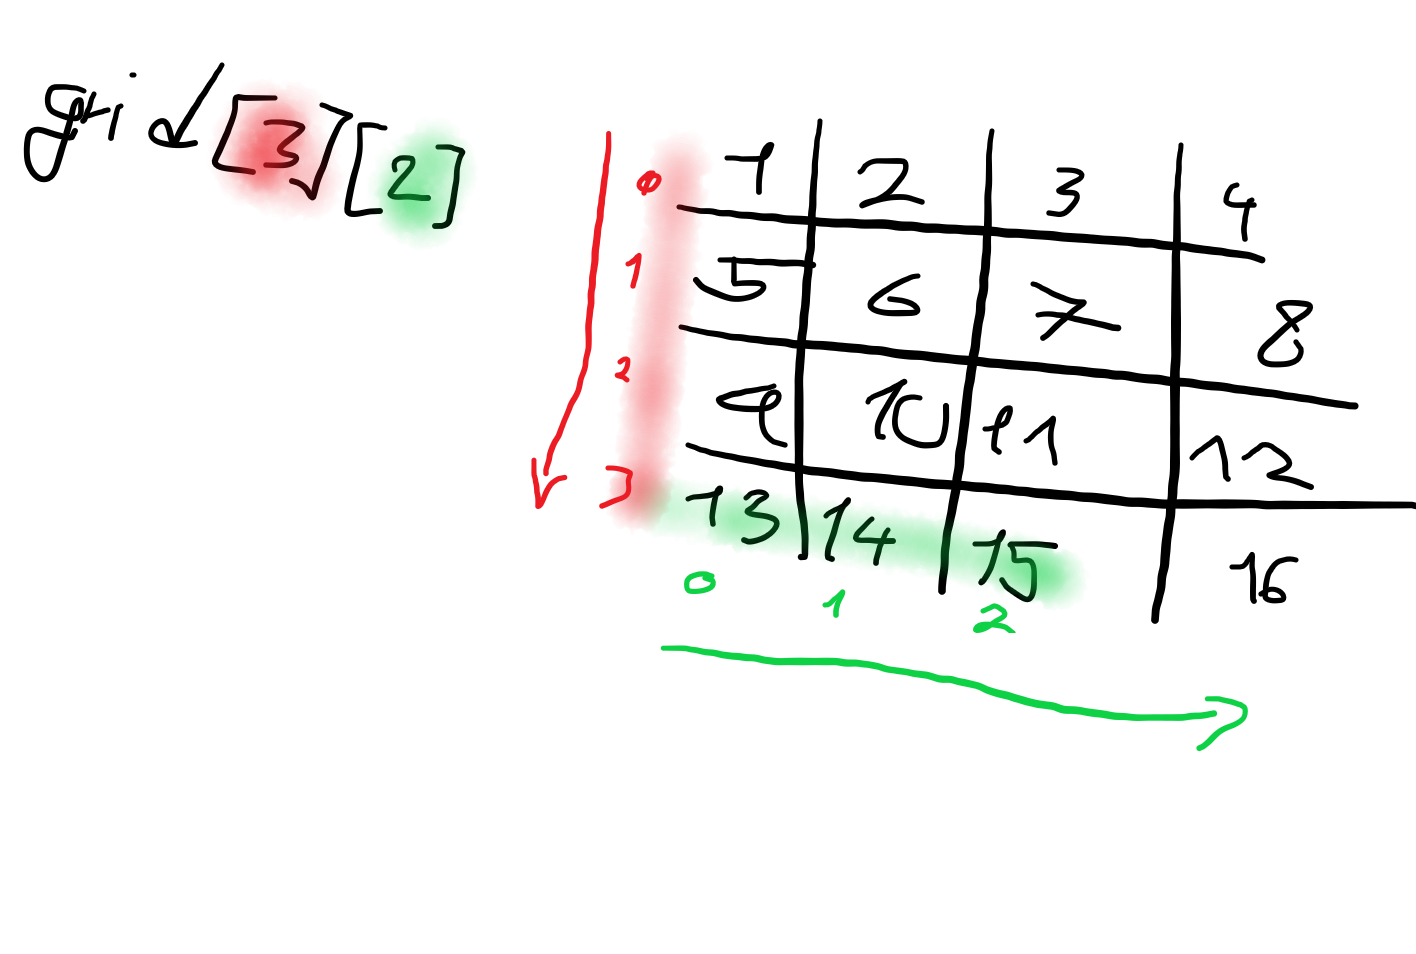 grid[3][2]
0 1 2 3 4
1 5 6 7 8
2 9 10 11 12
3 13 14 15 16
0 1 2